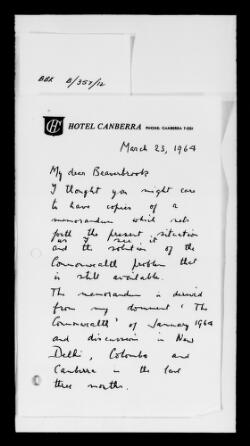 BBK B/357/12
HC HOTEL CANBERRA PHONE, CANBERRA
March 23, 1964
My dear Beaverbrook
I thought you might care
to have copies of a
memorandum which sets
forth the present situation
as I see it
and the solution of the
Commonwealth problem that
is still available.
The memorandum is derived
from my document 'The
Commonwealth' of January 1964
and discussion in New
Delhi, Colombo and
Canberra in the last
three months.